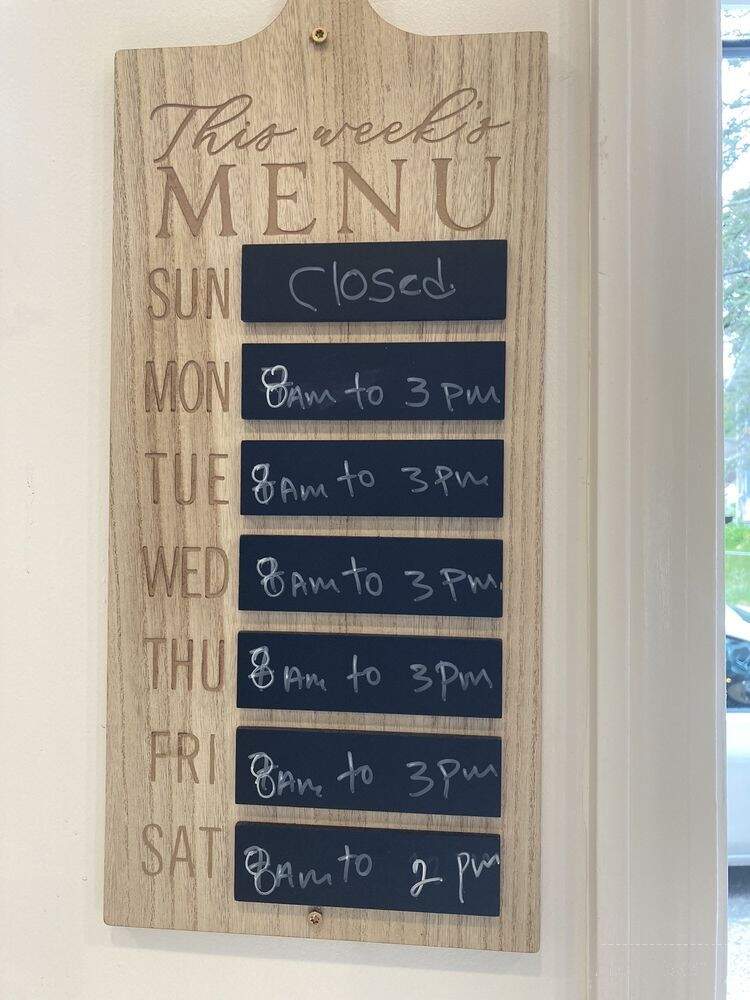 This week's
MENU
SUN Closed
MON 8Am to 3 pm
TUE 8Am to 3pm
WED 8Am to 3 pm
THU 8Am to 3pm
FRI 8Am to 3pm
SAT 8Am to 2 pm